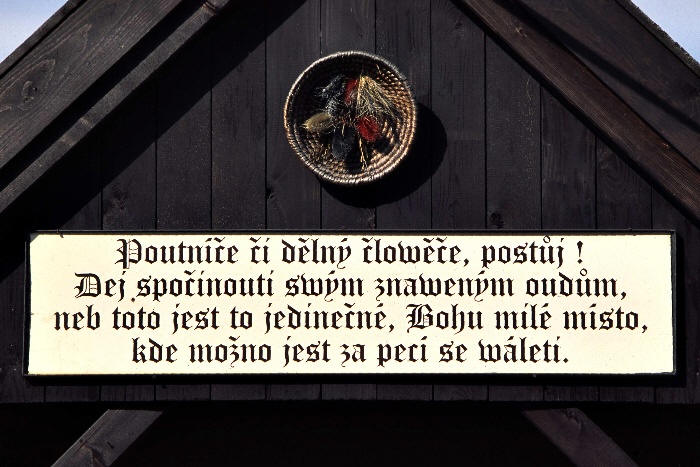 Poutníče či dělný člowěče, postůj !
Dej spočinouti swým znaweným oudům,
neb toto jest to jedinečné, Bohu milé místo,
kde možno jest za pecí se wáleti.